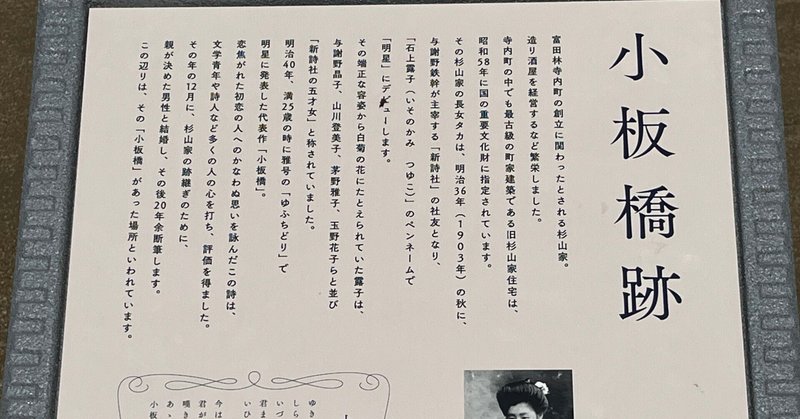 小板橋跡
富田林寺内町の創立に関わったとされる杉山家。
造り酒屋を経営するなど繁栄しました。
寺内町の中でも最古級の町家建築である旧杉山家住宅は、
昭和58年に国の重要文化財に指定されています。
その杉山家の長女タカは、明治36年(1903年)の秋に、
与謝野鉄幹が主宰する「新詩社」の社友となり、
「石上露子(いそのかみ つゆこ)」のペンネームで
「明星」にデビューします。
その端正な容姿から白菊の花にたとえられていた露子は、
与謝野晶子、山川登美子、茅野雅子、玉野花子らと並び
「新詩社の五才女」と称されていました。
明治40年、満25歳の時に雅号の「ゆふちどり」で
明星に発表した代表作「小板橋」。
恋焦がれた初恋の人へのかなわぬ思いを詠んだこの詩は、
文学青年や詩人など多くの人の心を打ち、評価を得ました。
その年の12月に、杉山家の跡継ぎのために、
親が決めた男性と結婚し、その後20年余断筆します。
この辺りは、その「小板橋」があった場所といわれています。
ゆき
しら
いづ
君ま
いひ
今は
君が
嘆き
あゝ
小板